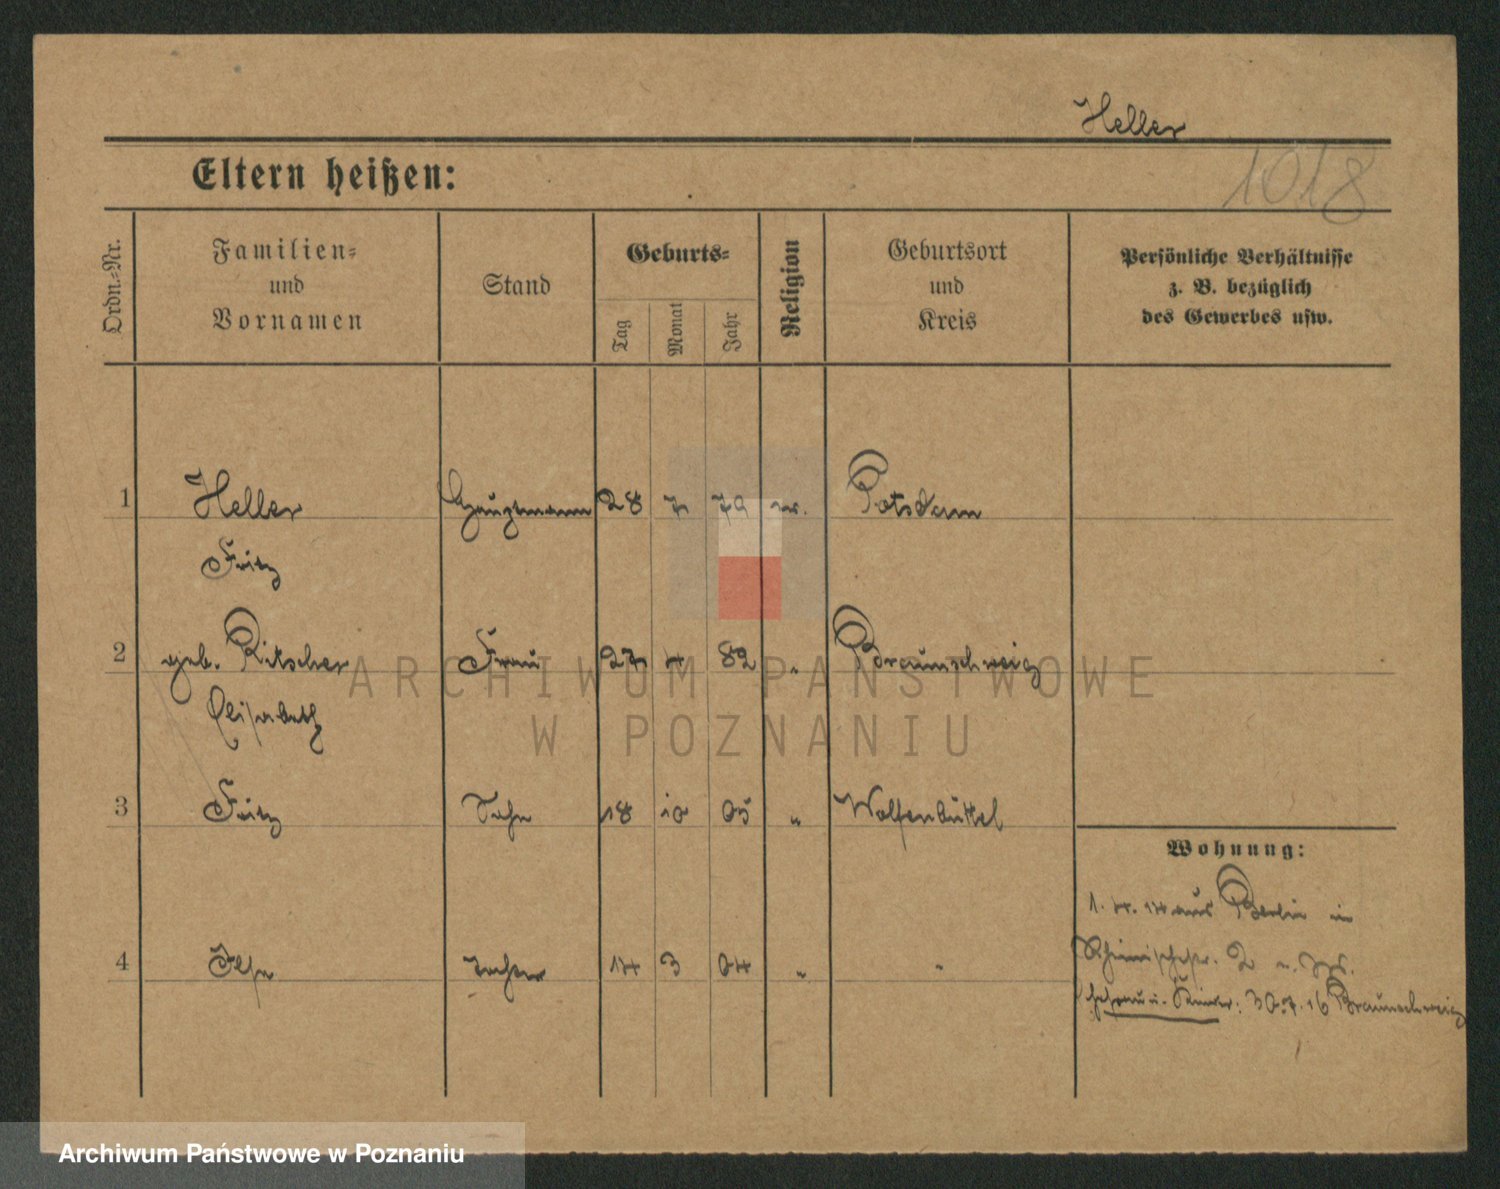 Heller
1018
Eltern heißen:
Ordn.=Nr.
Familien=
und
Vornamen
Stand
Geburts=
Tag
Monat
Jahr
Religion
Geburtsort
und
Kreis
Persönliche Verhältnisse
z. B. bezüglich
des Gewerbes usw.
1 Heller Hauptmann 28 7 79 ev. Potsdam
Fritz
2 geb. Ritscher Frau 27 4 82 " Braunschweig
Elisabeth
3 Fritz Sohn 18 10 05 " Wolfenbüttel
Wohnung:
1. 4. 14 aus Berlin in
4 Ilse Tochter 14 3 04 " "
2
Ehefrau u. Kinder: 30.7.16 Braunschweig
ARCHIWUM PAŃSTWOWE
W POZNANIU
Archiwum Państwowe w Poznaniu